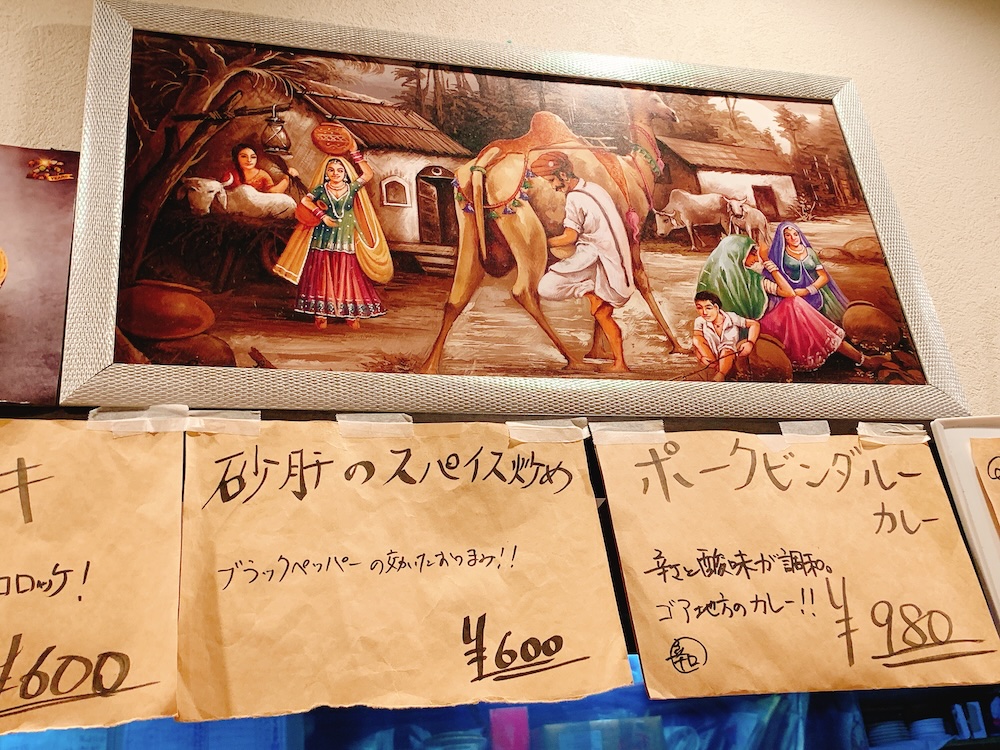 キ
コロッケ!
¥600
砂肝のスパイス炒め
ブラックペッパーの効いたおつまみ!!
¥600
ポークビンダルー
カレー
辛さと酸味が調和。
ゴア地方のカレー!!
¥980
辛口